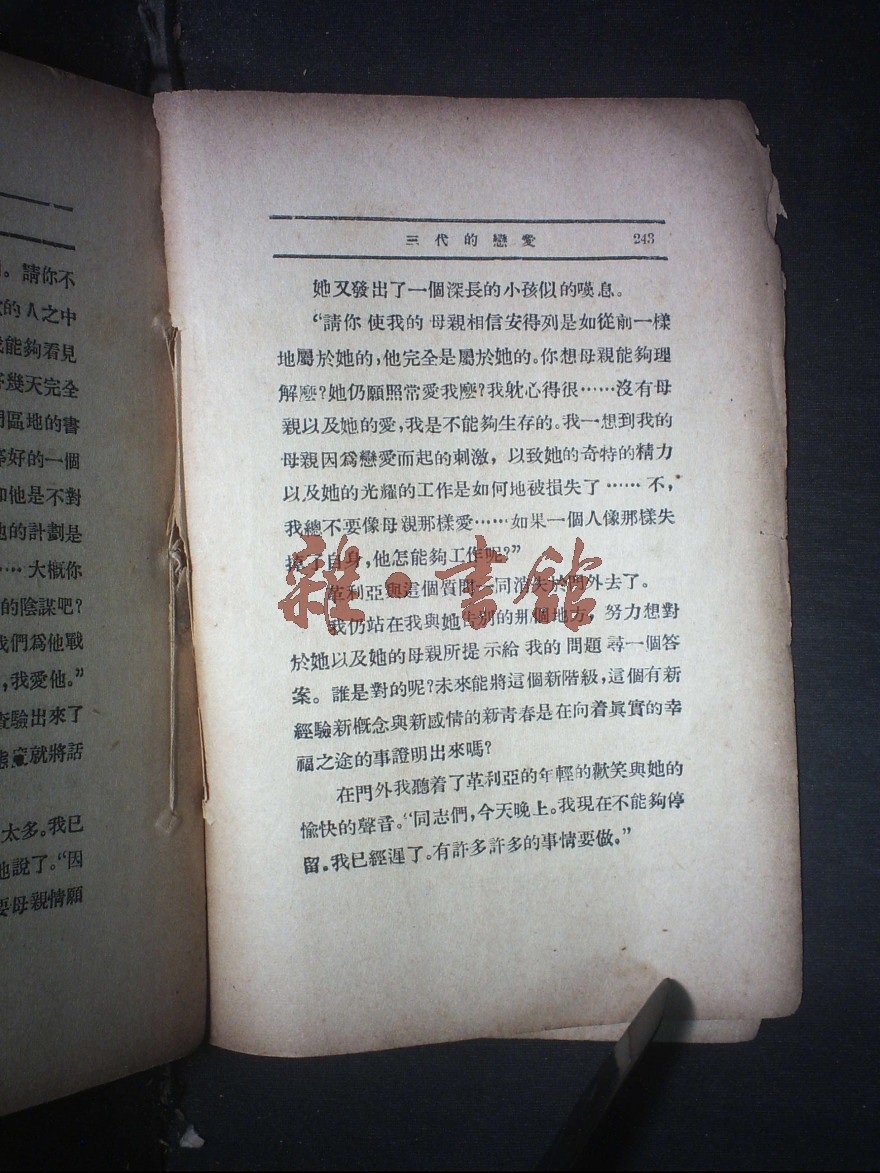 。請你不
的人之中
能夠看見
幾天完全
區地的書
好的一個
他是不對
的計劃是
…… 大概你
的陰謀吧?
們爲他戰
,我愛他。”
驗出來了
就將話
太多。我已
他說了。“因
要母親情願
三代的戀愛 243
她又發出了一個深長的小孩似的嘆息。
“請你使我的母親相信安得列是如從前一樣
地屬於她的,他完全是屬於她的。你想母親能夠理
解麼?她仍願照常愛我麼?我躭心得很……沒有母
親以及她的愛,我是不能夠生存的。我一想到我的
母親因爲戀愛而起的刺激,以致她的奇特的精力
以及她的光耀的工作是如何地被損失了……不,
我總不要像母親那樣愛……如果一個人像那樣失
掉了自身,他怎能夠工作呢?”
革利亞與這個質問一同消失於門外去了。
我仍站在我與她告別的那個地方,努力想對
於她以及她的母親所提示給我的問題尋一個答
案。誰是對的呢?未來能將這個新階級,這個有新
經驗新概念與新感情的新青春是在向着眞實的幸
福之途的事證明出來嗎?
在門外我聽着了革利亞的年輕的歡笑與她的
愉快的聲音。“同志們,今天晚上。我現在不能夠停
留。我已經遲了。有許多許多的事情要做。”
雜·書館